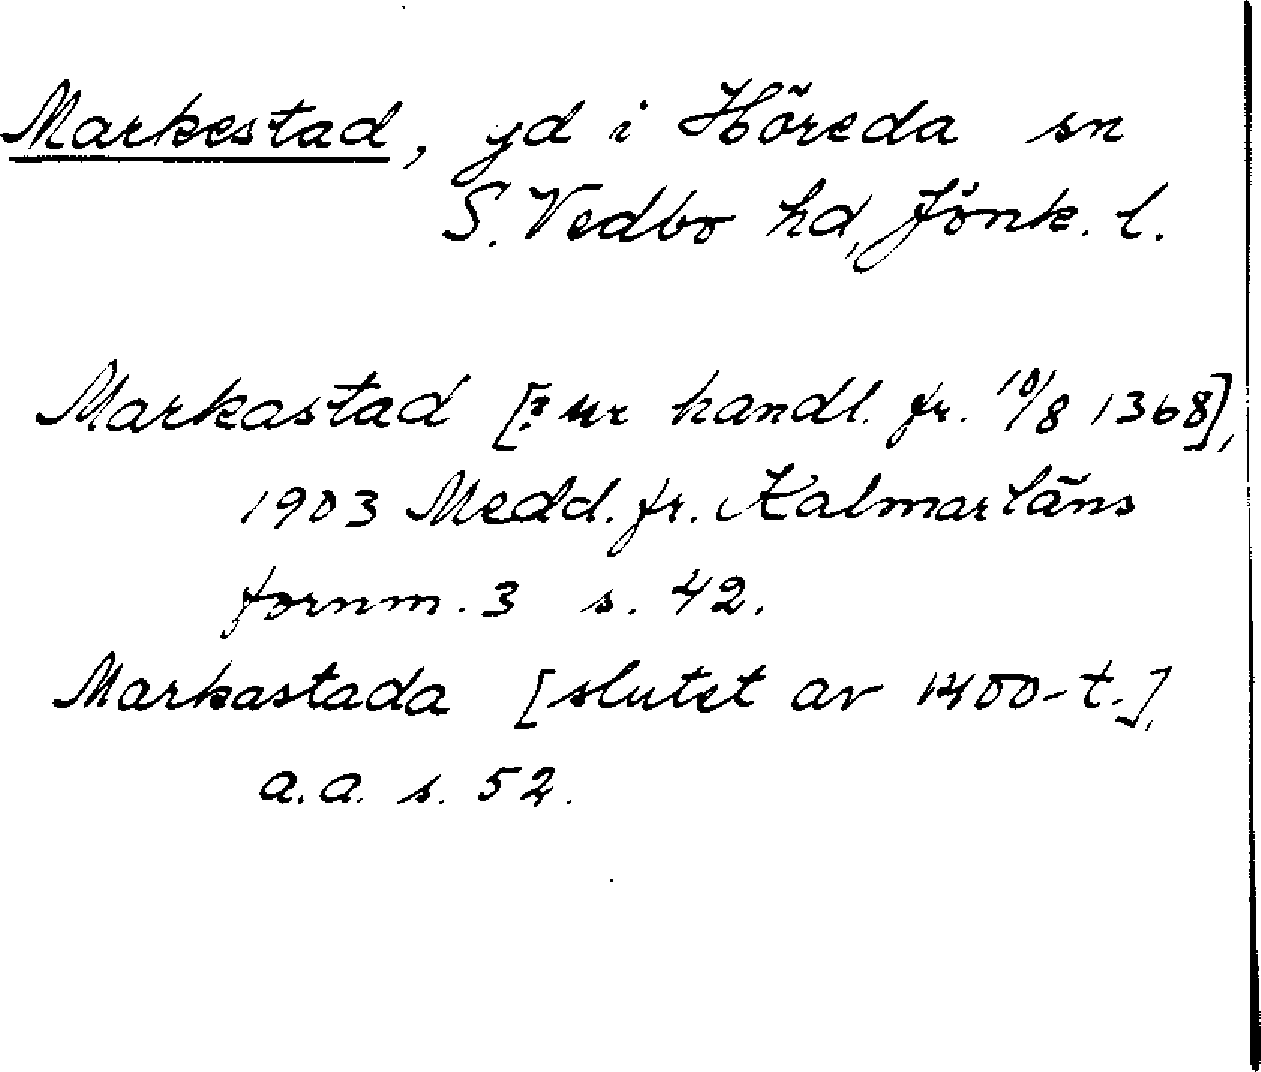 Markestad, gd i Höreda sn
S. Vedbo hd, Jönk. l.
Markastad [? ur handl. fr. 10/8 1368],
1903 Medd. fr. Kalmar läns
fornm. 3 s. 42.
Markastada [slutet av 1400-t.],
a.a. s. 52.